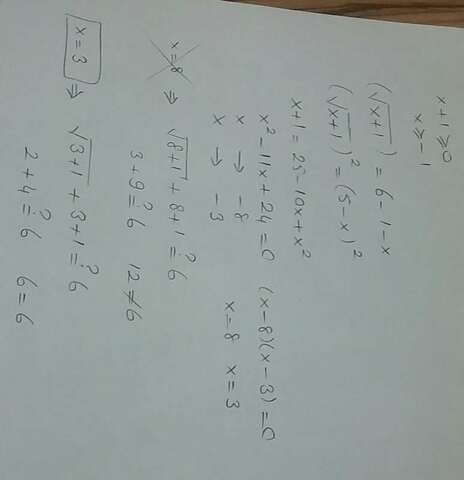 x+1⩾0
x⩾-1
(√x+1) = 6-1-x
(√x+1)² = (5-x)²
x+1 = 25-10x+x²
x²-11x+24=0 (x-8)(x-3)=0
x → -8 x=8 x=3
x → -3
x=8 ⇒ √8+1 + 8+1 ≟ 6
3+9 ≟ 6 12≠6
x=3 ⇒ √3+1 + 3+1 ≟ 6
2+4 ≟ 6 6=6